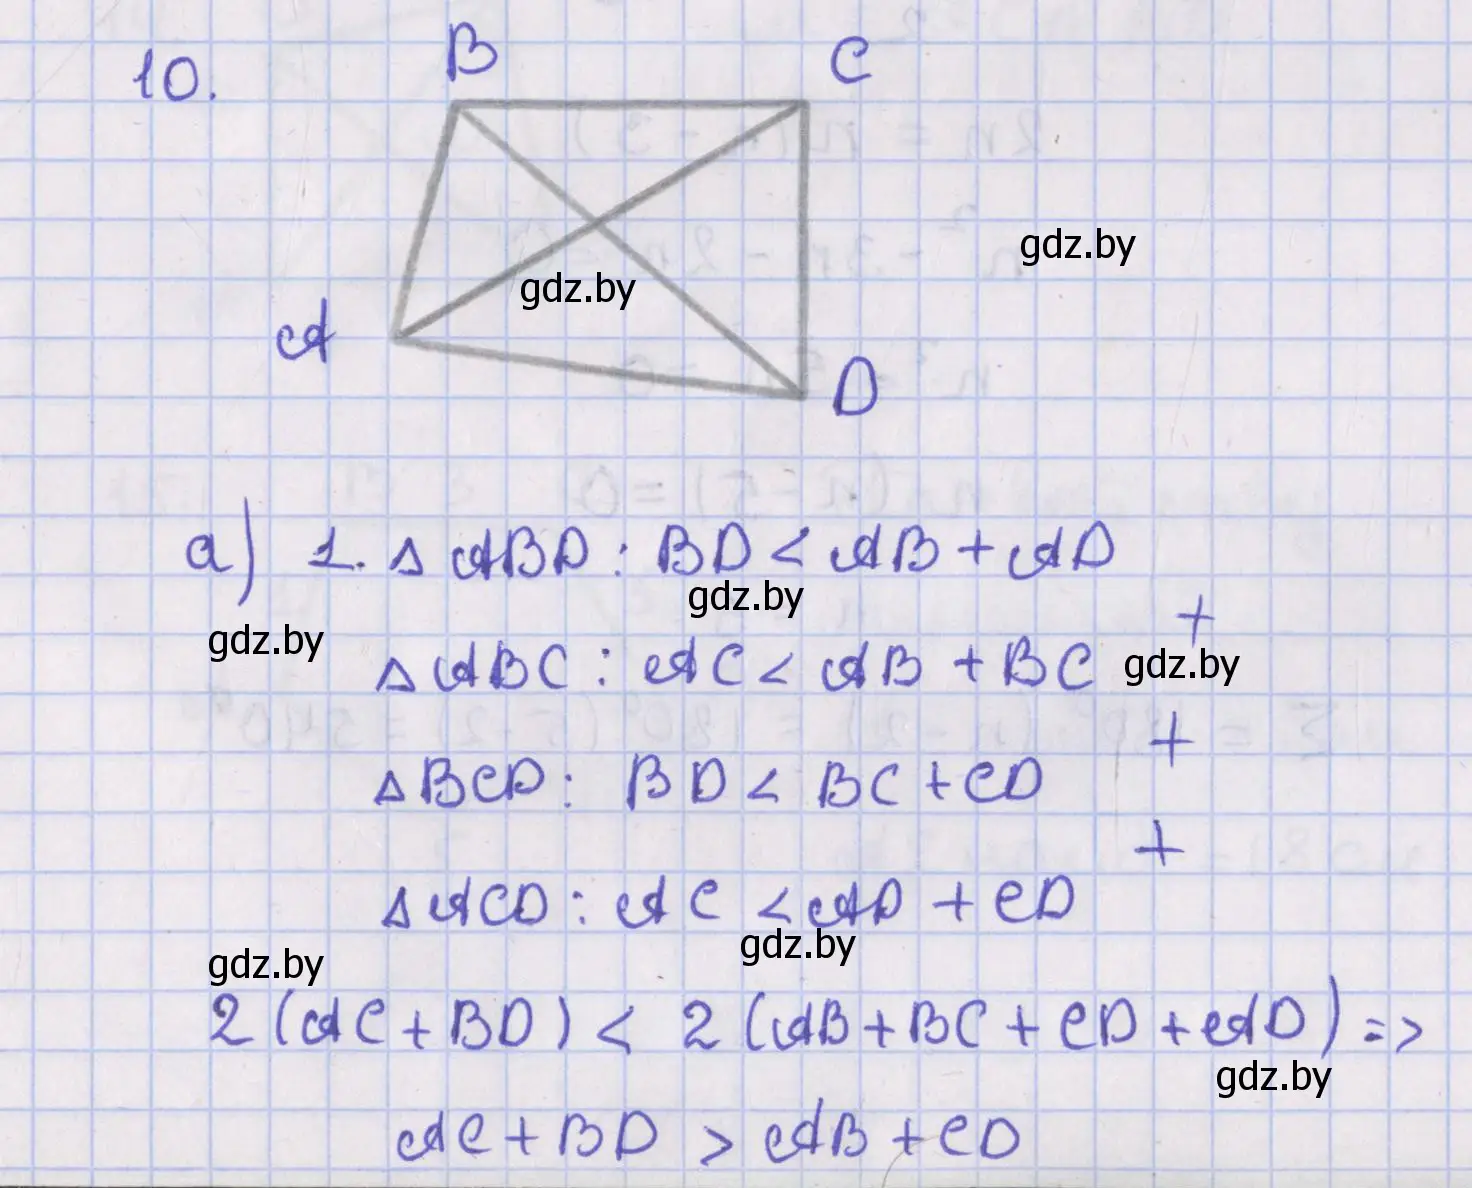 10.
B
C
gdz.by
gdz.by
A
D
а) 1. △ABD: BD < AB + AD
gdz.by
+
gdz.by
△ABC: AC < AB + BC
gdz.by
+
△BCD: BD < BC + CD
+
△ACD: AC < AD + CD
gdz.by
gdz.by
2(AC + BD) < 2(AB + BC + CD + AD) =>
gdz.by
AC + BD > AB + CD